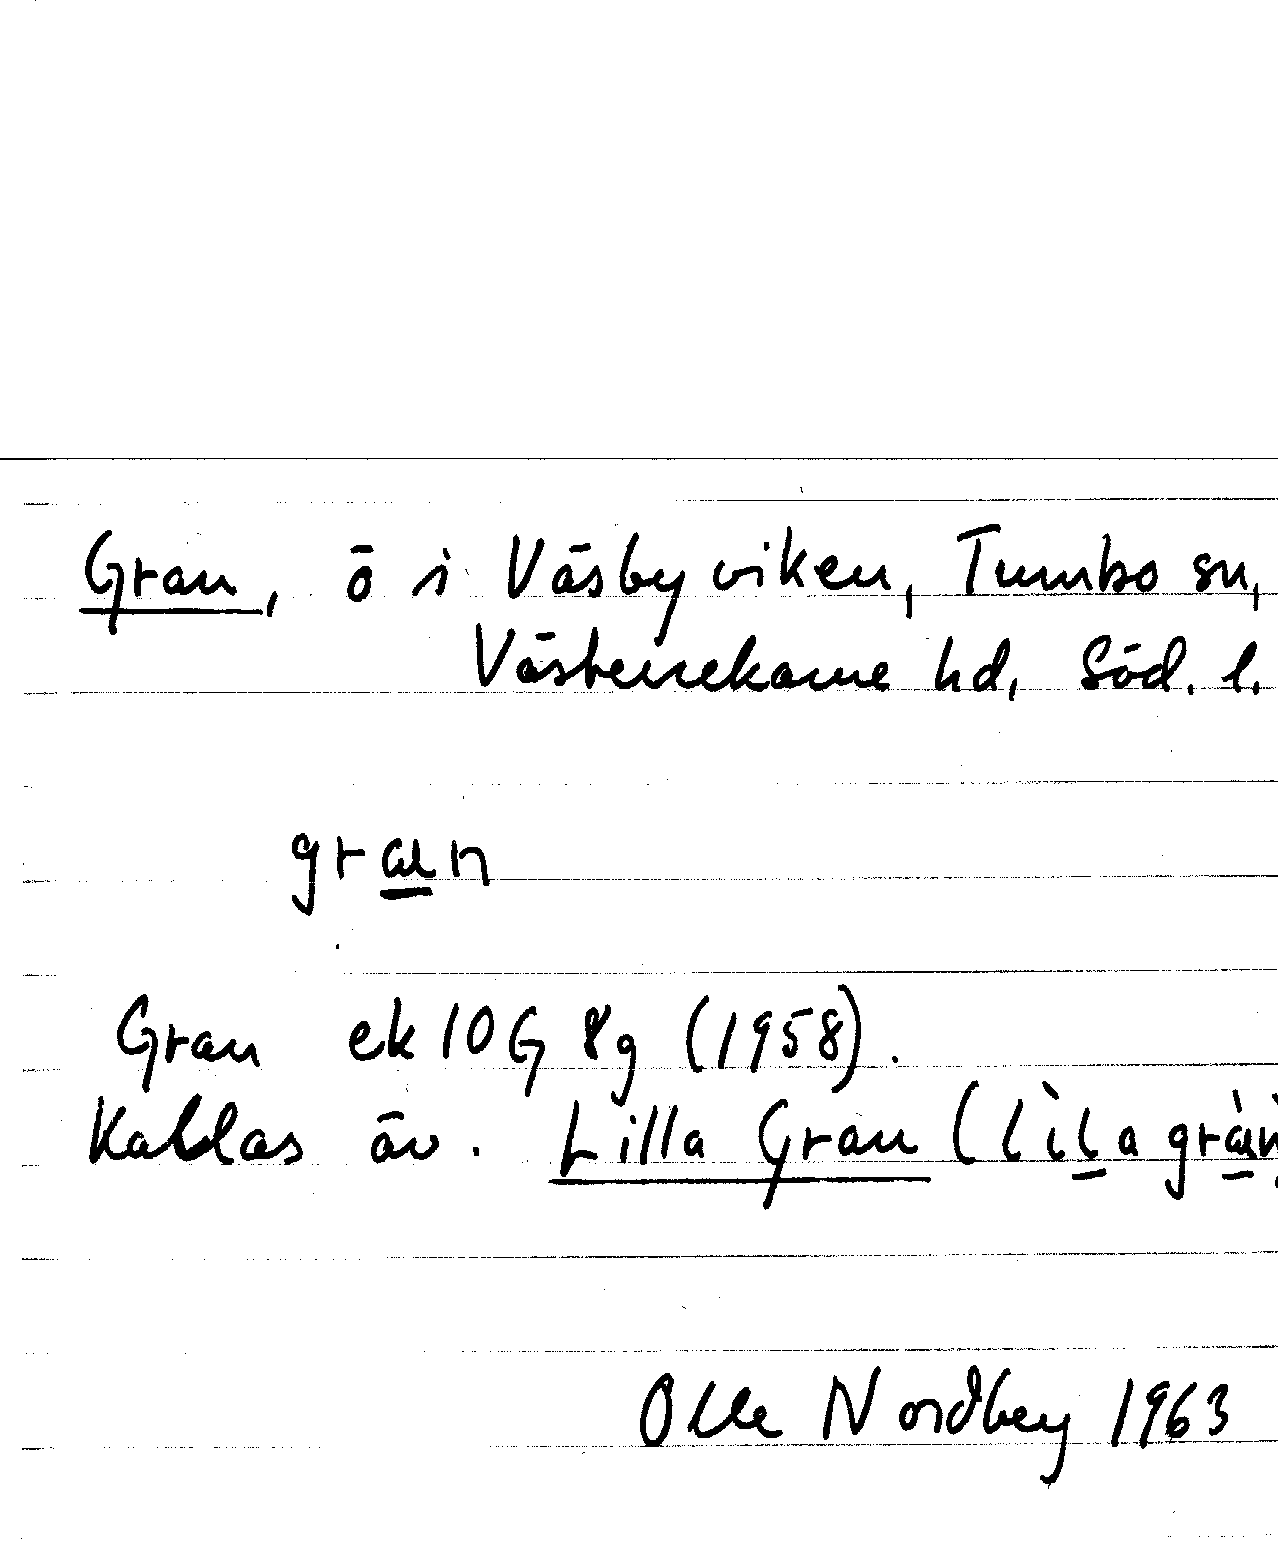 Gran, ö i Väsbyviken, Tumbo sn,
Västerrekarne hd, Söd. l.
gran
Gran ek 10G 8g (1958).
Kallas äv. Lilla Gran (lìla gràn
Olle Nordbey 1963